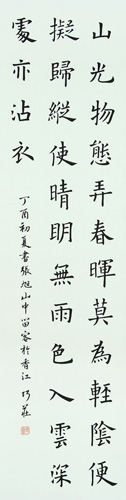 山光物態弄春暉莫為輕陰便
擬歸縱使晴明無雨色入雲深
處亦沾衣
丁酉初夏書張旭山中留客於香江